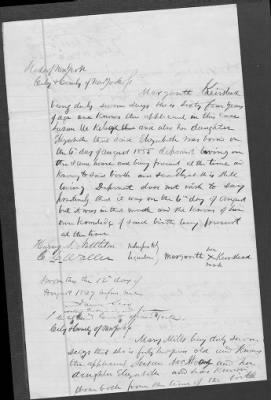 State of New York
City & County of New York ss
Margarett Kairstead
being duly sworn says she is sixty four years
of age and knows the applicant in this case
Susan Mc and also her daughter
Elizabeth that said Elizabeth was born on
the 6th day of August 1855 deponent living in
the same house and being present at the time
said birth and said Elizabeth is still
living. Deponent does not wish to say
positively that it was on the 6th day of August
but it was in that month and she knows of her
own knowledge of said birth being present
at the time
her
Margarett X Kairstead
mark
C. L. Waller
Sworn this 12th day of
August before me
City & County of New York ss
Mary Mills being duly sworn
says that she is years old and knows
the applicant Susan Mc and her
daughter Elizabeth and has known
them both from the time of the birth